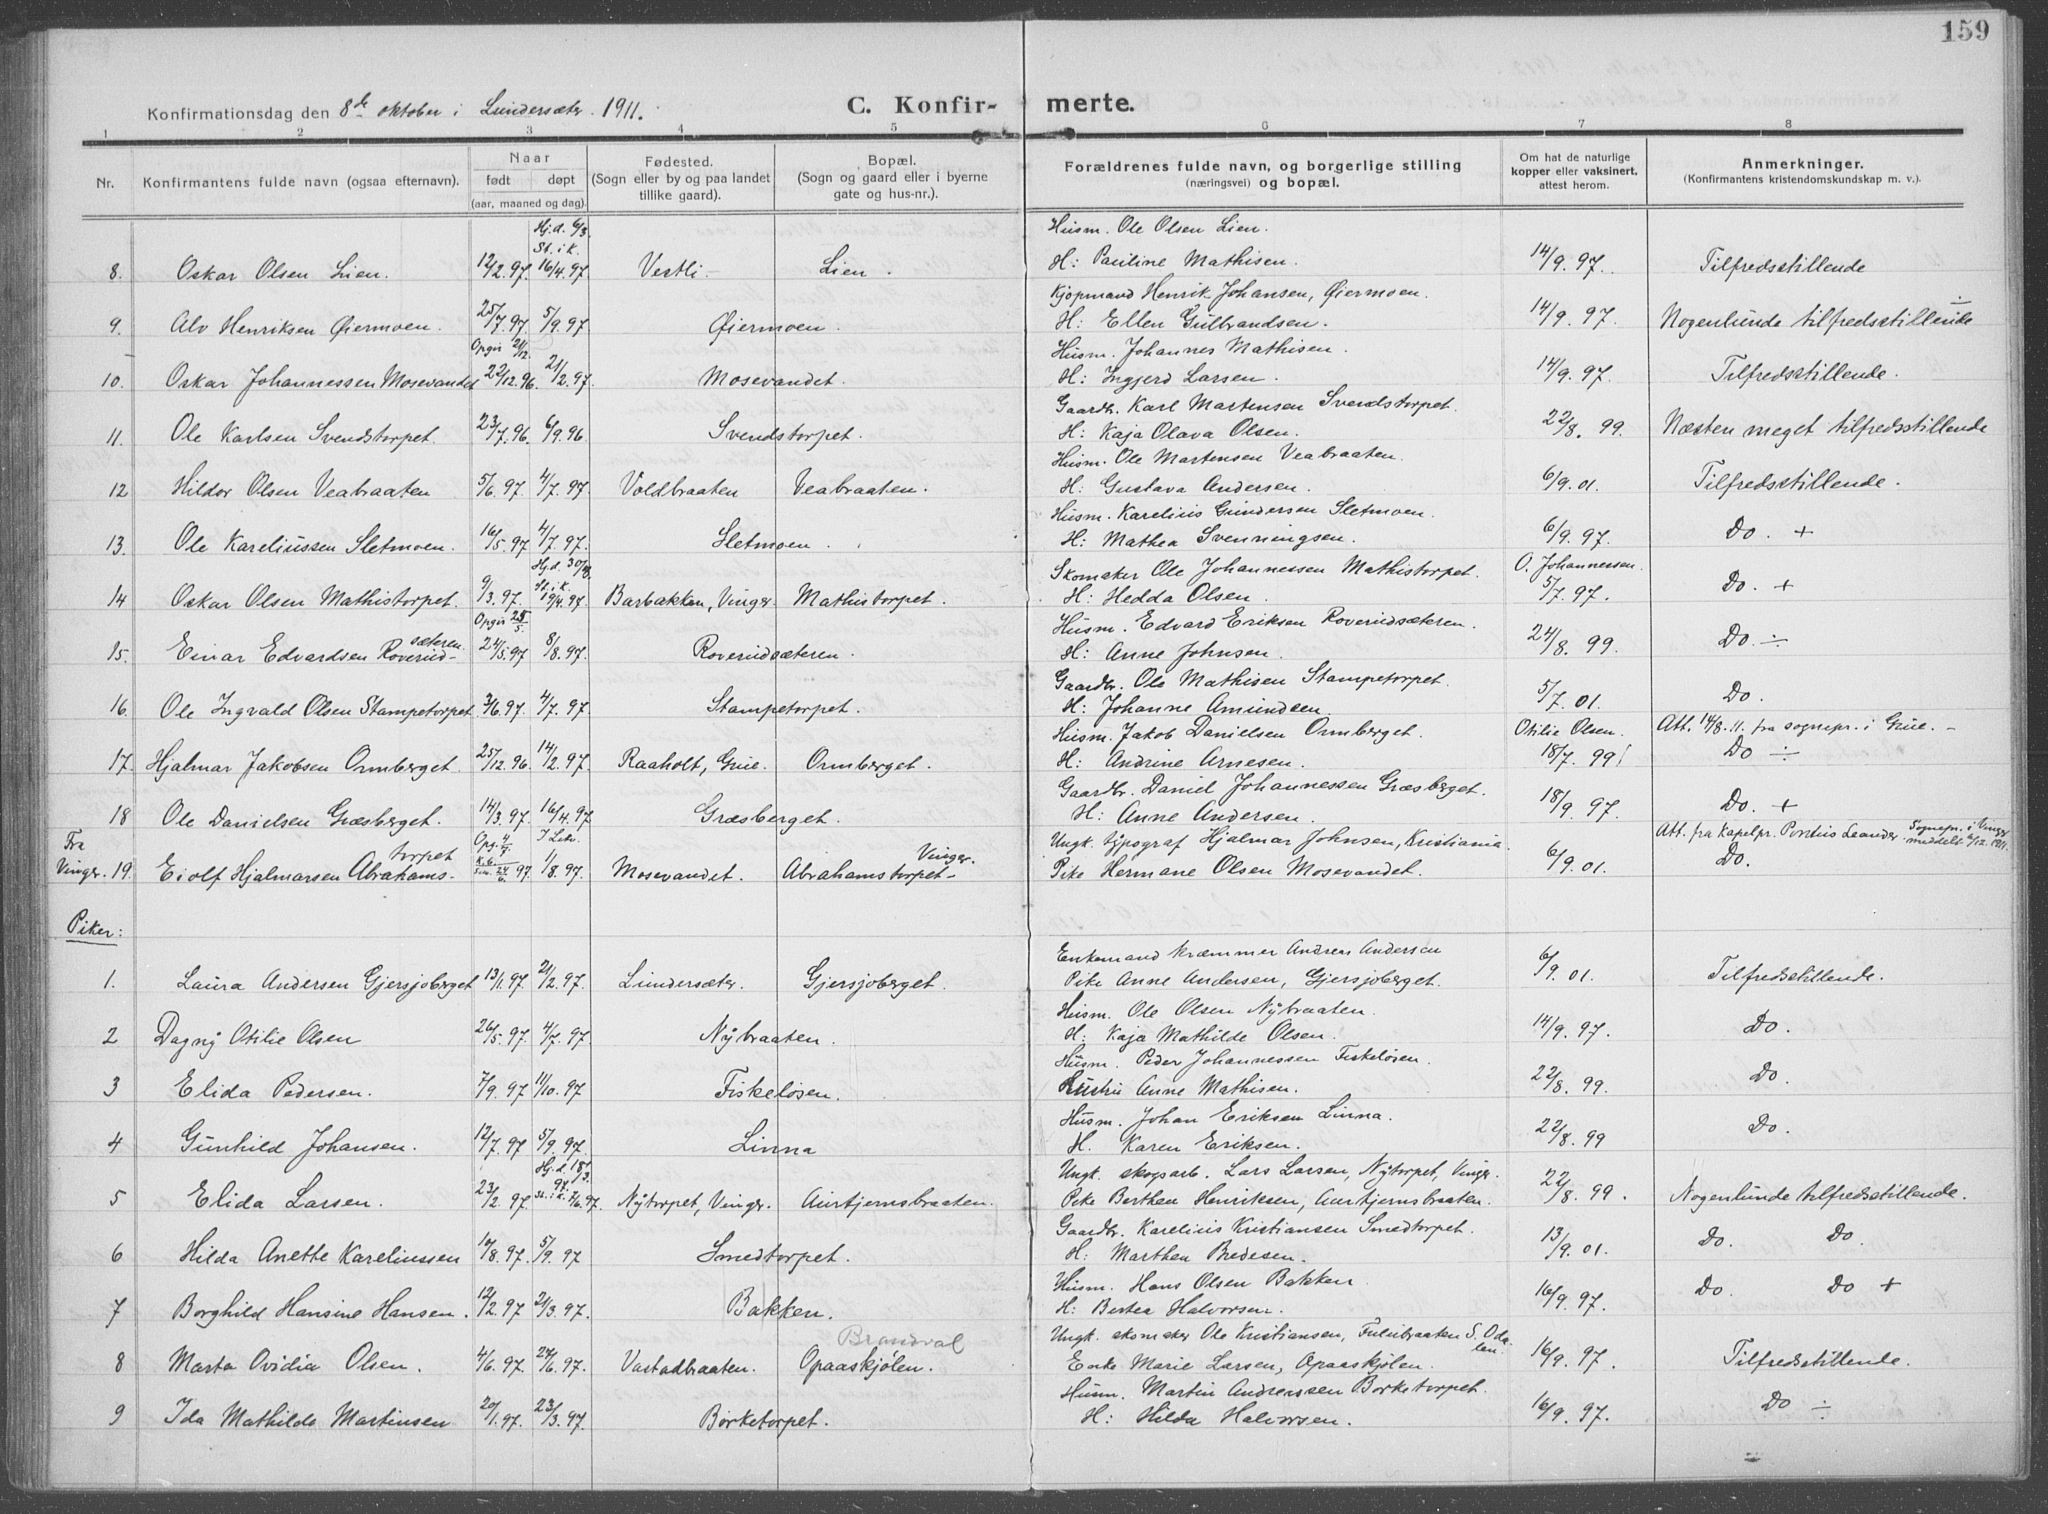 159
Konfirmationsdag den 8de oktober i Lundersæter 1911.
C. Konfir-
merte.
1 2 3 4 5 6 7 8
Nr.
Konfirmantens fulde navn (ogsaa efternavn).
Naar
født døpt
(aar, maaned og dag).
Fødested.
(Sogn eller by og paa landet
tillike gaard).
Bopæl.
(Sogn og gaard eller i byerne
gate og hus-nr.).
Forældrenes fulde navn, og borgerlige stilling
(næringsvei) og bopæl.
Om hat de naturlige
kopper eller vaksinert,
attest herom.
Anmerkninger.
(Konfirmantens kristendomskundskap m. v.).
Hj.d. 6/3
St. i k.
Husm. Ole Olsen Lien.
8. Oskar Olsen Lien. 12/2.97. 16/4.97. Vestli. Lien. H: Pauline Mathisen. 14/9.97. Tilfredsstillende
Kjøpmand Henrik Johansen, Øiermoen.
9. Alv Henriksen Øiermoen. 25/7.97. 5/9.97 Øiermoen. H: Ellen Gulbrandsen. 14/9.97. Nogenlunde tilfredsstillende ÷
Opgis 21/12.
Husm. Johannes Mathisen.
10. Oskar Johannessen Mosevandet 22/12.96. 21/2.97. Mosevandet. H: Ingjerd Larsen. 14/9.97. Tilfredsstillende.
Gaardbr. Karl Martensen Svendstorpet.
11. Ole Karlsen Svendstorpet. 23/7.96. 6/9.96 Svendstorpet. H: Kaja Olava Olsen. 22/8.99. Næsten meget tilfredsstillende
Husm. Ole Martensen Veabraaten.
12 Hildor Olsen Veabraaten 5/6.97. 4/7.97. Voldbraaten Veabraaten. H: Gustava Andersen. 6/9.01. Tilfredsstillende.
Husm. Karelius Gundersen Sletmoen.
13. Ole Kareliussen Sletmoen. 16/5.97 4/7.97. Sletmoen. H: Mathea Svenningsen. 6/9.97. Do. +
Hj.d. 30/3
St. i k.
Skomaker Ole Johannessen Mathistorpet. O. Johannessen.
14 Oskar Olsen Mathistorpet. 9/3.97. 19/4.97. Barbakken, Vinger. Mathistorpet. H: Hedda Olsen. 5/7.97. Do. +
Opgis 25/5.
Husm. Edvard Eriksen Roverudsæteren.
sæteren.
15. Einar Edvardsen Roverud- 24/5.97 8/8.97. Roverudsæteren. H: Anne Johnsen. 24/8.99. Do. ÷
Gaardbr. Ole Mathisen Stampetorpet.
16. Ole Ingvald Olsen Stampetorpet 3/6.97. 4/7.97. Stampetorpet. H: Johanne Amundsen. 5/7.01. Do.
Husm. Jakob Danielsen Ormberget. Otilie Olsen. Att. 14/8.11. fra sognepr. i Grue. -
17. Hjalmar Jakobsen Ormberget. 25/12.96. 14/2.97. Raaholt, Grue. Ormberget. H: Andrine Arnesen. 18/7.99! Do ÷
Gaardbr. Daniel Johannessen Græsberget.
18 Ole Danielsen Græsberget. 14/3.97. 16/4.97. Græsberget. H: Anne Andersen. 18/9.97. Do. +
Ungk. typograf Hjalmar Johnsen, Kristiania. Att. fra kapelpr. Pontus Leander. Sognepr. i Vinger meddelt 6/12.1911.
torpet Vinger.
Fra Vinger. 19. Eiolf Hjalmarsen Abrahams- 97 1/8.97. Mosevandet. Abrahamstorpet- Pike Hermane Olsen Mosevandet. 6/9.01. Do.
Piker:
Enkemand kræmmer Andreas Andersen
1. Laura Andersen Gjersjøberget 13/1.97. 21/2.97. Lundersæter. Gjersjøberget. Pike Anne Andersen, Gjersjøberget. 6/9.01. Tilfredsstillende.
Husm. Ole Olsen Nybraaten.
2 Dagny Otilie Olsen 26/5.97. 4/7.97. Nybraaten. H: Kaja Mathilde Olsen. 14/9.97. Do.
Husm. Peder Johannessen Fiskeløsen.
3 Elida Pedersen. 7/9.97. 11/10.97 Fiskeløsen. Hustru Anne Mathisen. 22/8.99. Do.
Husm. Johan Eriksen Linna.
4 Gunhild Johansen. 12/7.97 5/9.97. Linna H. Karen Eriksen. 22/8.99 Do.
Hj.d. 18/3.
97.
St. i k.
Ungk. skogsarb. Lars Larsen, Nytorpet, Vinger.
5 Elida Larsen. 23/2.97. 7/6.97. Nytorpet, Vinger. Aurtjernsbraaten. Pike Berthea Henriksen, Aurtjernsbraaten. 22/8.99. Nogenlunde tilfredsstillende.
Gaardbr. Karelius Kristiansen Smedtorpet.
6 Hilda Anette Kareliussen 10/8.97. 5/9.97 Smedtorpet. H: Marthea Bredesen. 13/9.01. Do. Do.
Husm. Hans Olsen Bakken
7 Borghild Hansine Hansen. 12/2.97 21/3.97. Bakken. H: Bertea Halvorsen. 16/9.97. Do. Do +
Brandval
Ungk. skomaker Ole Kristiansen, Fulubraaten S. Odalen.
8 Marta Ovidia Olsen. 4/6.97. 24/6.97. Vastadbraaten. Opaaskjølen. Enke Marie Larsen, Opaaskjølen. 16/9.97. Tilfredsstillende.
Husm. Martin Andreassen Børketorpet.
9 Ida Mathilde Martinsen 20/1.97. 23/3.97. Børketorpet. H: Hilda Halvorsen. 16/9.97. Do ÷